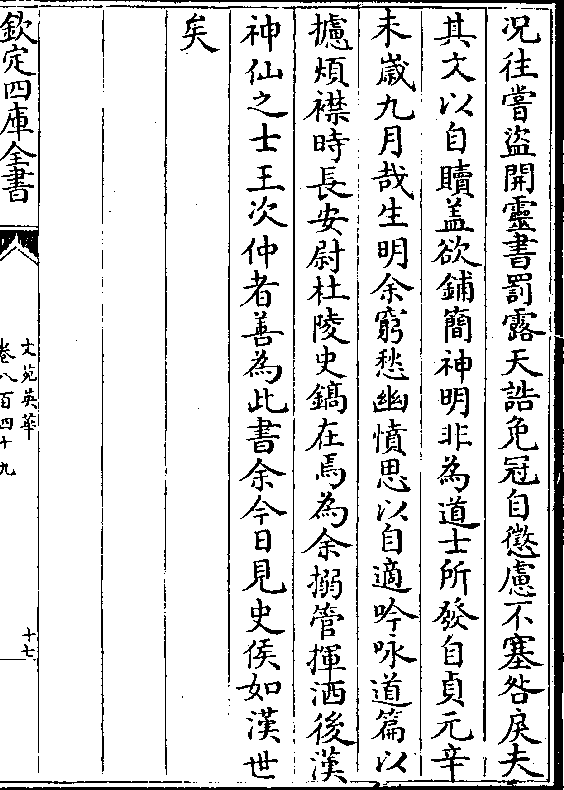 况往嘗盜開靈書罰露天誥免冠自懲慮不塞咎戾夫
其文以自贖盖欲鋪簡神明非為道士所發自貞元辛
未歲九月哉生明余窮愁幽憤思以自適吟咏道篇以
攄煩襟時長安尉杜陵史鎬在焉為余搦管揮洒後漢
神仙之士王次仲者善為此書余今日見史侯如漢世
矣
欽定四庫全書
文苑英華
卷八百四十九
十七